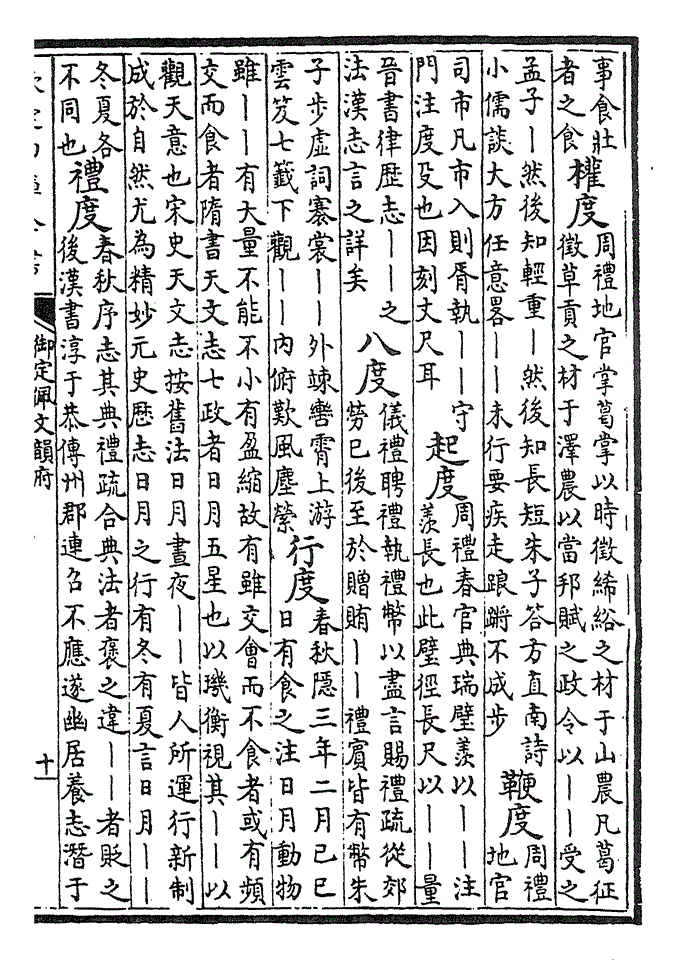 事食壯
者之食
權度
周禮地官掌葛掌以時徵絺綌之材于山農凡葛征
徵草貢之材于澤農以當邦賦之政令以丨丨受之
孟子丨然後知輕重丨然後知長短朱子答方直南詩
小儒談大方任意畧丨丨未行要疾走踉蹡不成步
鞭度
周禮
地官
司市凡市入則胥執丨丨守
門注度殳也因刻丈尺耳
起度
周禮春官典瑞璧羨以丨丨注
羨長也此璧徑長尺以丨丨量
晉書律歴志丨丨之
法漢志言之詳矣
八度
儀禮聘禮執禮幣以盡言賜禮疏從郊
勞已後至於贈賄丨丨禮賓皆有幣朱
子步虛詞褰裳丨丨外竦轡霄上游
雲笈七籤下觀丨丨內俯歎風塵縈
行度
春秋隱三年二月己巳
日有食之注日月動物
雖丨丨有大量不能不小有盈縮故有雖交會而不食者或有頻
交而食者隋書天文志七政者日月五星也以璣衡視其丨丨以
觀天意也宋史天文志按舊法日月晝夜丨丨皆人所運行新制
成於自然尤為精妙元史歴志日月之行有冬有夏言日月丨丨
冬夏各
不同也
禮度
春秋序志其典禮疏合典法者褒之違丨丨者貶之
後漢書淳于恭傳州郡連召不應遂幽居養志潛于
御定佩文韻府
十